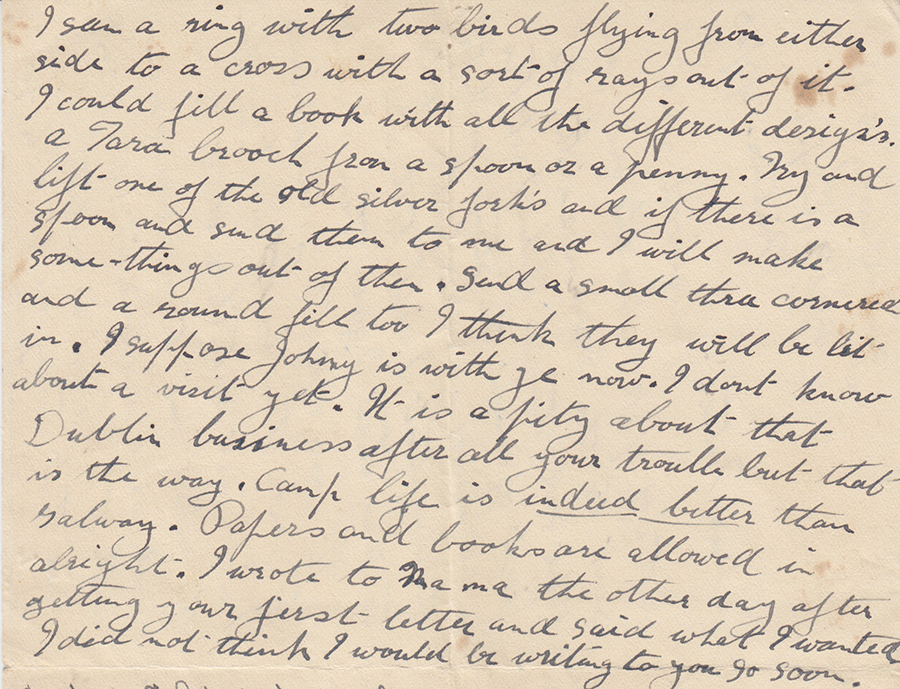 I saw a ring with two birds flying from either
side to a cross with a sort of rays out of it.
I could fill a book with all the different design's.
a Tara brooch from a spoon or a penny. Try and
lift one of the old silver fork's and if there is a
spoon and send them to me and I will make
some-things out of them. Send a small three cornered
and a round fill too I think they will be let
in. I suppose Johny is with ye now. I dont know
about a visit yet. It is a pity about that
Dublin business after all your trouble but that
is the way. Camp life is indeed better than
Galway. Papers and books are allowed in
alright. I wrote to Mama the other day after
getting your first letter and said what I wanted
I did not think I would be writing to you so soon.